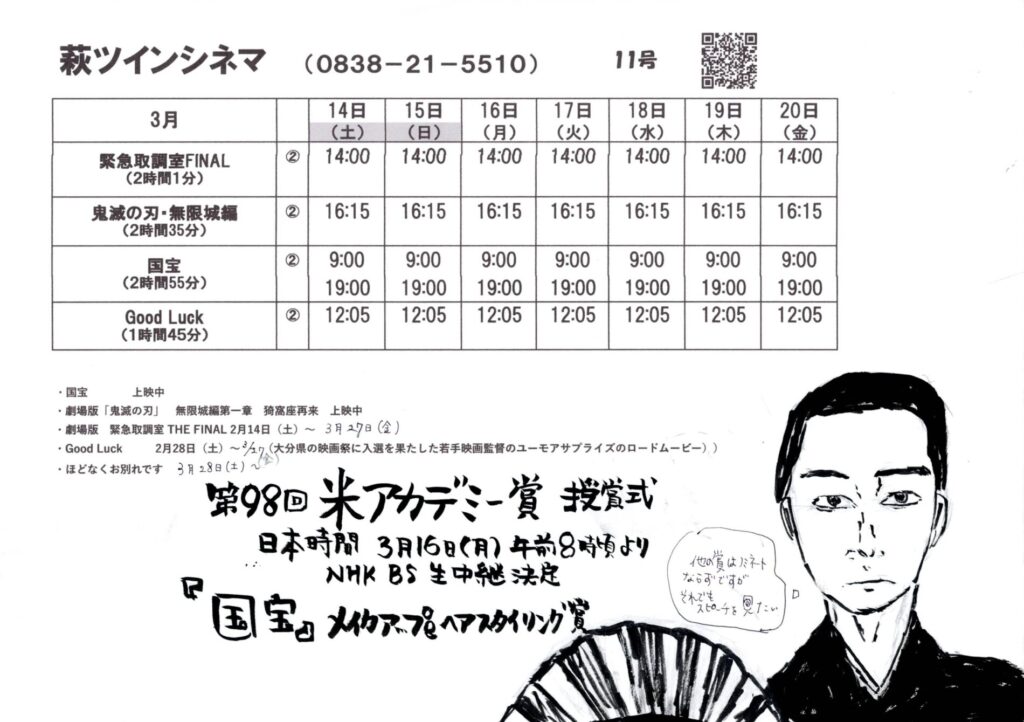 萩ツインシネマ （0838－21－5510） 11号
3月 14日 15日 16日 17日 18日 19日 20日
（土） （日） （月） （火） （水） （木） （金）
緊急取調室FINAL ② 14:00 14:00 14:00 14:00 14:00 14:00 14:00
（2時間1分）
鬼滅の刃・無限城編 ② 16:15 16:15 16:15 16:15 16:15 16:15 16:15
（2時間35分）
国宝 ② 9:00 9:00 9:00 9:00 9:00 9:00 9:00
（2時間55分） 19:00 19:00 19:00 19:00 19:00 19:00 19:00
Good Luck ② 12:05 12:05 12:05 12:05 12:05 12:05 12:05
（1時間45分）
・国宝 上映中
・劇場版「鬼滅の刃」 無限城編第一章 猗窩座再来 上映中
・劇場版 緊急取調室 THE FINAL 2月14日（土）～ 3月27日(金)
・Good Luck 2月28日（土）～3/27(金)（大分県の映画祭に入選を果たした若手映画監督のユーモアサプライズのロードムービー））
・ほどなくお別れです 3月28日(土)～
第98回 米アカデミー賞 授賞式
日本時間 3月16日(月) 午前8時頃より
NHK BS 生中継決定
『国宝』 メイクアップ&ヘアスタイリング賞
他の賞はノミネート
ならずですが
それでも
スピーチを見たい